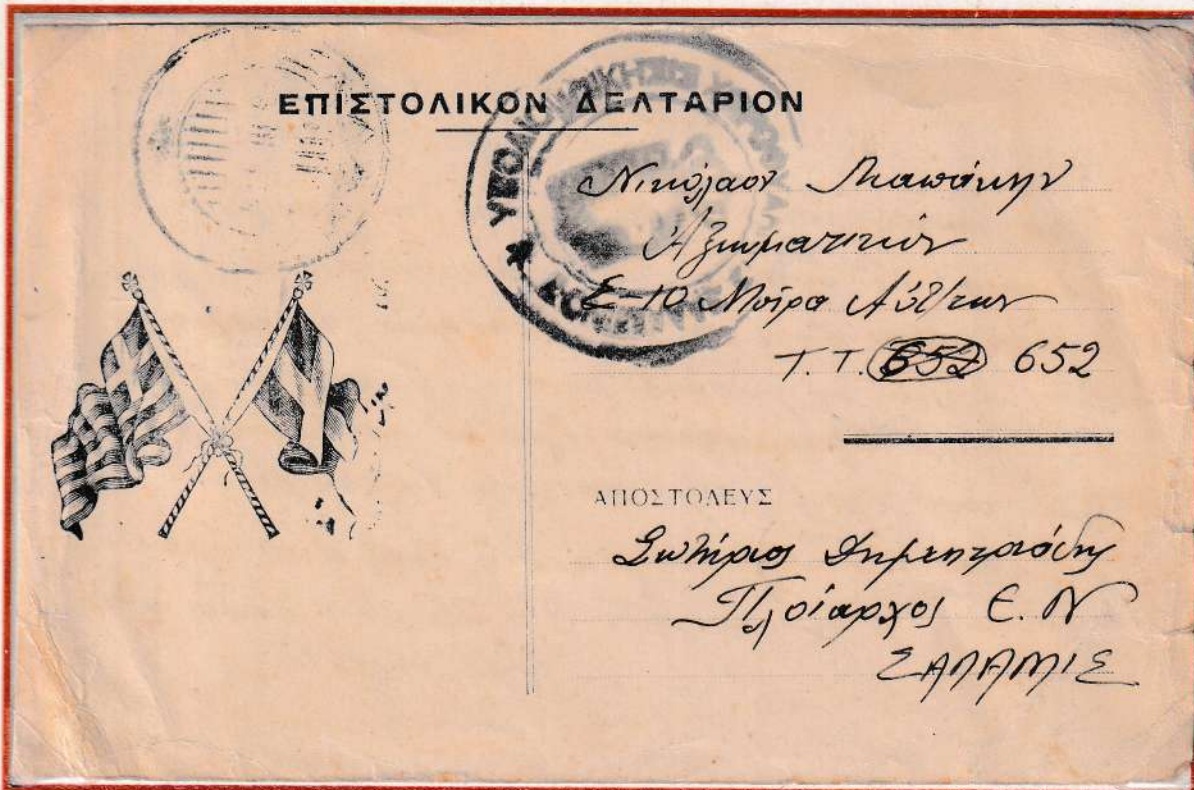 ΕΠΙΣΤΟΛΙΚΟΝ ΔΕΛΤΑΡΙΟΝ
Νικόλαον
Ἀξιωματικόν
Ε-10 Μοῖρα
Τ.Τ. 652 652
ΑΠΟΣΤΟΛΕΥΣ
Σωτήριος Δημητριάδης
Πλοίαρχος Ε.Ν
ΣΑΛΑΜΙΣ